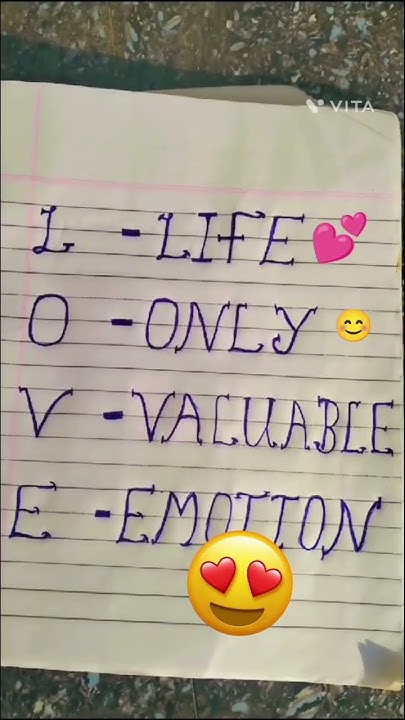 VITA
L - LIFE 💕
O - ONLY 😊
V - VALUABLE
E - EMOTION